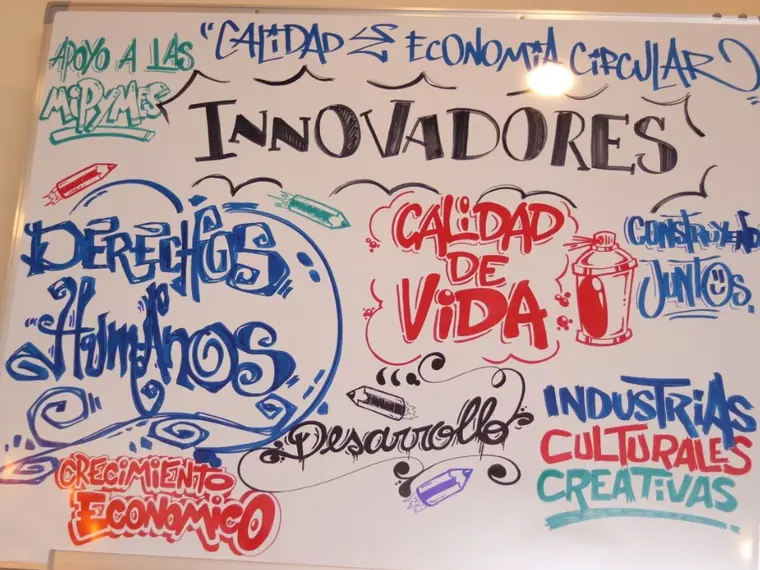 APOYO A LAS
MiPYMES
"CALIDAD ES ECONOMIA CIRCULAR"
INNOVADORES
DERECHOS
HUMANOS
CALIDAD
DE
VIDA
CONSTRUYENDO
JUNTOS.
Desarrollo
INDUSTRIAS
CULTURALES
CREATIVAS
CRECIMIENTO
ECONOMICO